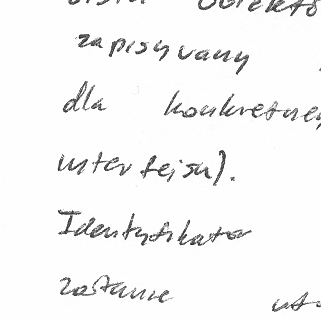 zapisywany
dla konkretnej
interfejsu).
Identyfikator
zostanie